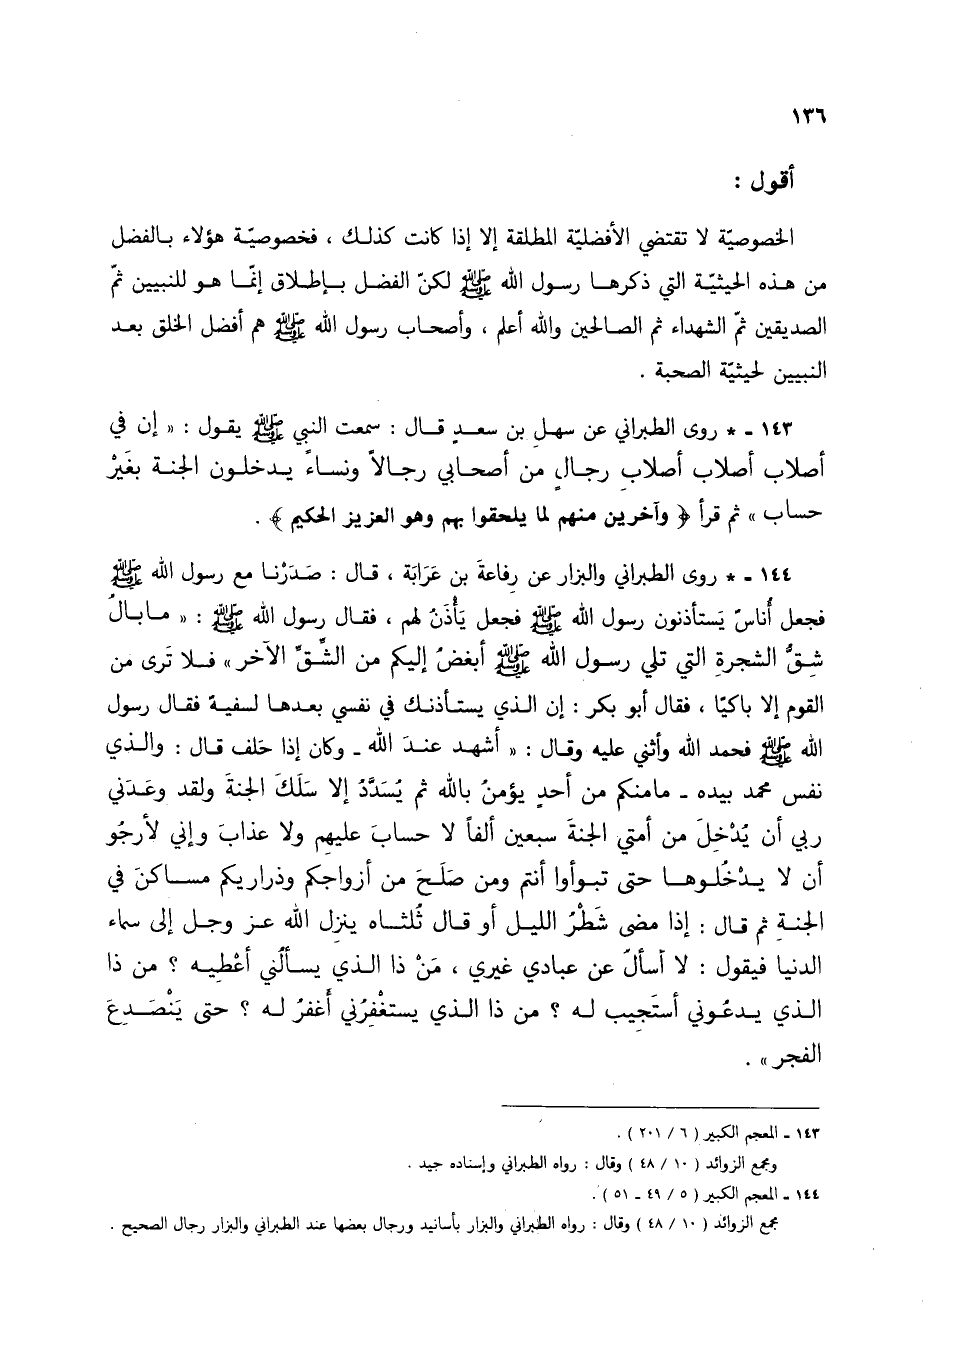 ١٣٦
أقول :
الخصوصيّة لا تقتضي الأفضليّة المطلقة إلا إذا كانت كذلك ، فخصوصيّة هؤلاء بالفضل
من هذه الحيثيّة التي ذكرها رسول الله ﷺ لكنّ الفضل بإطلاق إنّما هو للنبيين ثمّ
الصديقين ثمّ الشهداء ثم الصالحين والله أعلم ، وأصحاب رسول الله ﷺ هم أفضل الخلق بعد
النبيين لحيثيّة الصحبة .
١٤٣ ـ * روى الطبراني عن سهل بن سعدٍ قال : سمعت النبي ﷺ يقول : « إن في
أصلاب أصلاب أصلاب رجالٍ من أصحابي رجالاً ونساءً يدخلون الجنة بغَيْرِ
حساب » ثم قرأ ﴿ وآخرين منهم لما يلحقوا بهم وهو العزيز الحكيم ﴾ .
١٤٤ ـ * روى الطبراني والبزار عن رِفاعةَ بن عَرَابَة ، قال : صَدَرْنا مع رسول الله ﷺ
فجعل أُناسٌ يَستأذنون رسول الله ﷺ فجعل يَأْذَنُ لهم ، فقال رسول الله ﷺ : « مابالُ
شِقُّ الشجرةِ التي تلي رسول الله ﷺ أبغضُ إليكم من الشِّقِّ الآخر » فلا تَرى من
القوم إلا باكيًا ، فقال أبو بكر : إن الذي يستأذنك في نفسي بعدها لسفيهٌ فقال رسول
الله ﷺ فحمد الله وأثني عليه وقال : « أشهد عندَ الله ـ وكان إذا حَلف قال : والذي
نفس محمد بيده ـ مامنكم من أحدٍ يؤمنُ بالله ثم يُسَدَّدُ إلا سَلَكَ الجنةَ ولقد وعَدَني
ربي أن يُدْخِلَ من أمتي الجنةَ سبعين ألفاً لا حسابَ عليهم ولا عذابَ وإني لأرجُو
أن لا يدْخُلوها حتى تبوأوا أنتم ومن صَلَحَ من أزواجكم وذراريكم مساكنَ في
الجنةِ ثم قال : إذا مضى شَطْرُ الليل أو قال ثُلثاه ينزل الله عز وجل إلى سماء
الدنيا فيقول : لا أسألُ عن عبادي غيري ، مَنْ ذا الذي يسألُني أعْطيه ؟ من ذا
الذي يدعُوني أستَجيب له ؟ من ذا الذي يستغْفِرُني أغفرُ له ؟ حتى يَنْصَدِعَ
الفجر » .
١٤٣ ـ المعجم الكبير ( ٦ / ٢٠١ ) .
ومجمع الزوائد ( ١٠ / ٤٨ ) وقال : رواه الطبراني وإسناده جيد .
١٤٤ ـ المعجم الكبير ( ٥ / ٤٩ ـ ٥١ ) .
مجمع الزوائد ( ١٠ / ٤٨ ) وقال : رواه الطبراني والبزار بأسانيد ورجال بعضها عند الطبراني والبزار رجال الصحيح .